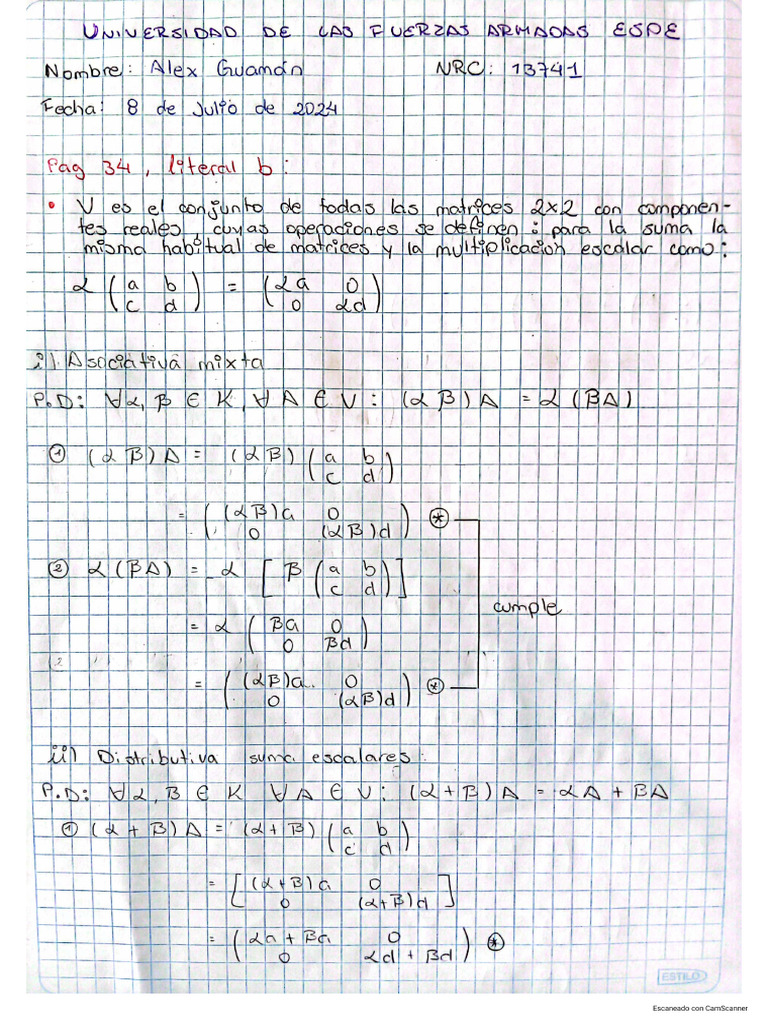 UNIVERSIDAD DE LAS FUERZAS ARMADAS ESPE
Nombre: Alex Guamán NRC: 13741
Fecha: 8 de Julio de 2024
Pag 34, literal b:
• V es el conjunto de todas las matrices 2x2 con componen-
tes reales, cuyas operaciones se definen: para la suma la
misma habitual de matrices y la multiplicación escalar como:
α (a b) = (αa 0)
(c d) (0 αd)
i) Asociativa mixta
P.D: ∀α, β ∈ K, ∀ A ∈ V : (αβ)A = α(βA)
① (αβ)A = (αβ) (a b)
(c d)
= ((αβ)a 0) ⊛
(0 (αβ)d)
② α(βA) = α [β (a b)]
(c d)
cumple
= α (βa 0)
(0 βd)
= ((αβ)a. 0) ⊛
(0 (αβ)d)
ii) Distributiva suma escalares:
P.D: ∀α, β ∈ K ∀ A ∈ V : (α + β)A = αA + βA
① (α + β)A = (α + β) (a b)
(c d)
= [(α+β)a 0]
[0 (α+β)d]
= (αa + βa 0) ⊛
(0 αd + βd)
ESTILO
Escaneado con CamScanner